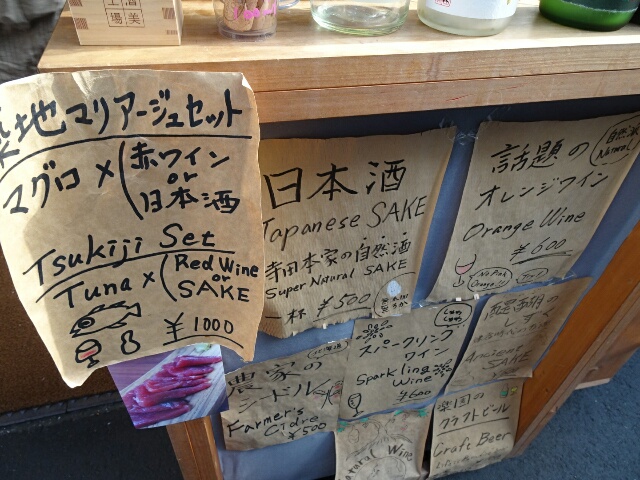 地マリアージュセット
マグロ×(赤ワイン
or
日本酒
Tsukiji Set
Tuna×(Red Wine
or
SAKE
¥1000
日本酒
Japanese SAKE
寺田本家の自然酒
Super Natural SAKE
杯 ¥500
自然派
Natural
話題の
オレンジワイン
Orange Wine
¥600
No Pink
Orange!!
北海道
農家の
シードル
Farmer's
Cidre
¥500
スパークリング
ワイン
Sparkling
Wine
¥600
しずく
Ancient
SAKE
楽園の
クラフトビール
Craft Beer
Natural Wine